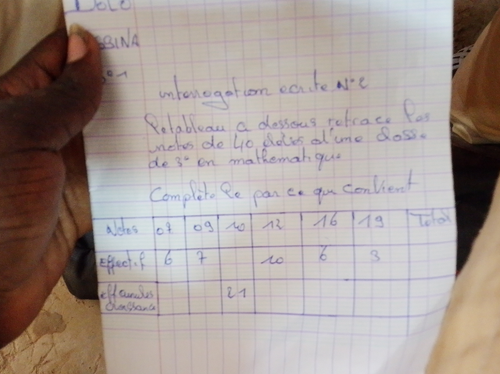 BBINA
N°1
interrogation ecrite N°2
le tableau a dessous retrace les
notes de 40 élèves d'une classe
de 3e en mathematique
Complète le par ce qui convient
Notes 07 09 10 12 16 19 Total
Effectif 6 7 10 6 3
eff cumulés 21
croissant